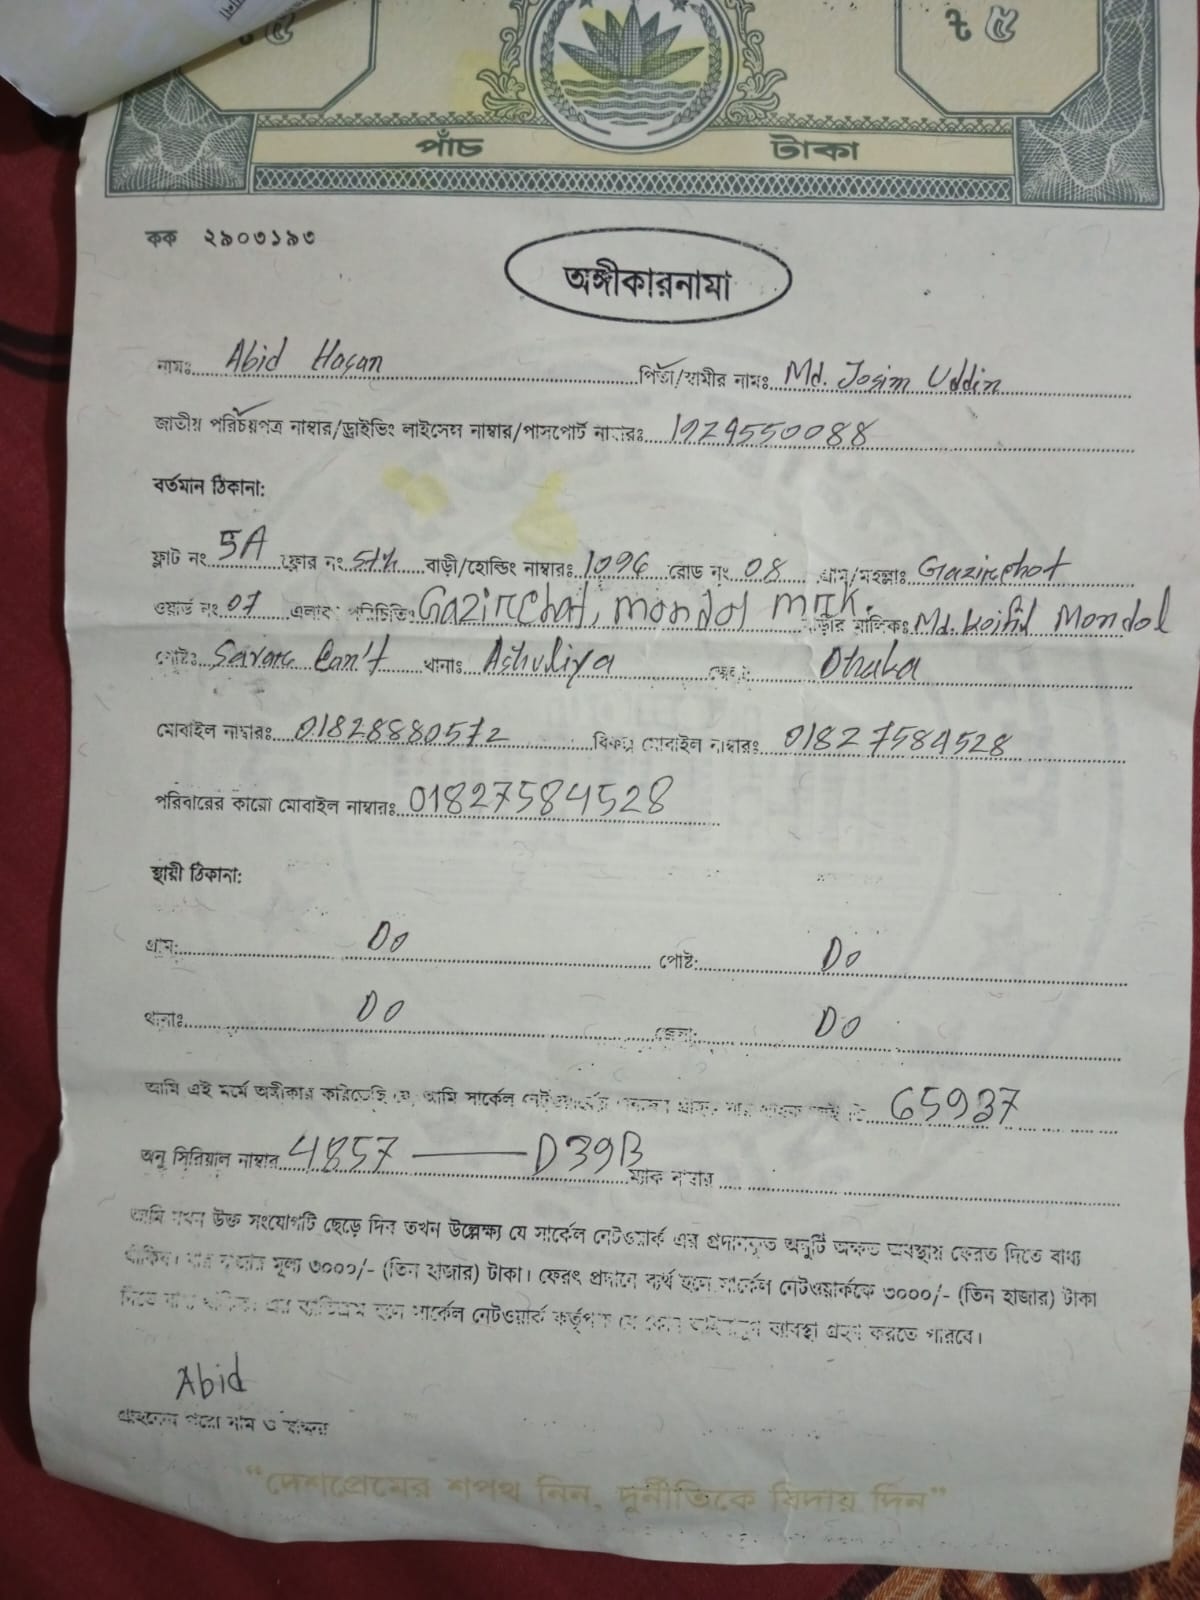 ৳ ৫
৳ ৫
পাঁচ টাকা
কক ২৯০৩১৯৩
অঙ্গীকারনামা
নামঃ Abid Hasan পিতা/স্বামীর নামঃ Md. Josim Uddin
জাতীয় পরিচয়পত্র নাম্বার/ড্রাইভিং লাইসেন্স নাম্বার/পাসপোর্ট নাম্বারঃ 1929550088
বর্তমান ঠিকানা:
ফ্লাট নং 5A ফ্লোর নং 5th বাড়ী/হোল্ডিং নাম্বারঃ 1096 রোড নং 08 গ্রাম/মহল্লাঃ Gazirchot
ওয়ার্ড নং 07 এলাকা পরিচিতিঃ Gazirchat, mondol mrk. বাড়ীর মালিকঃ Md. Mondol
পোষ্টঃ Savar Can't থানাঃ Ashuliya জেলাঃ Dhaka
মোবাইল নাম্বারঃ 01828880572 বিকল্প মোবাইল নাম্বারঃ 01827584528
পরিবারের কারো মোবাইল নাম্বারঃ 01827584528
স্থায়ী ঠিকানা:
গ্রাম: Do পোষ্ট: Do
থানাঃ Do জেলা: Do
আমি এই মর্মে অঙ্গীকার করিতেছি যে, আমি সার্কেল নেটওয়ার্কের 65937
অনু সিরিয়াল নাম্বার 4857 — D39B ম্যাক নাম্বার
আমি যখন উক্ত সংযোগটি ছেড়ে দিব তখন উল্লেক্ষ্য যে সার্কেল নেটওয়ার্ক এর প্রদানকৃত অনুটি অক্ষত অবস্থায় ফেরত দিতে বাধ্য
থাকিব। যার বাজার মূল্য ৩০০০/- (তিন হাজার) টাকা। ফেরৎ প্রদানে ব্যর্থ হলে সার্কেল নেটওয়ার্ককে ৩০০০/- (তিন হাজার) টাকা
দিতে বাধ্য থাকিব। এর ব্যতিক্রম হলে সার্কেল নেটওয়ার্ক কর্তৃপক্ষ যে কোন আইনানুগ ব্যবস্থা গ্রহণ করতে পারবে।
Abid
গ্রাহকের পুরো নাম ও স্বাক্ষর
“দেশপ্রেমের শপথ নিন, দুর্নীতিকে বিদায় দিন”